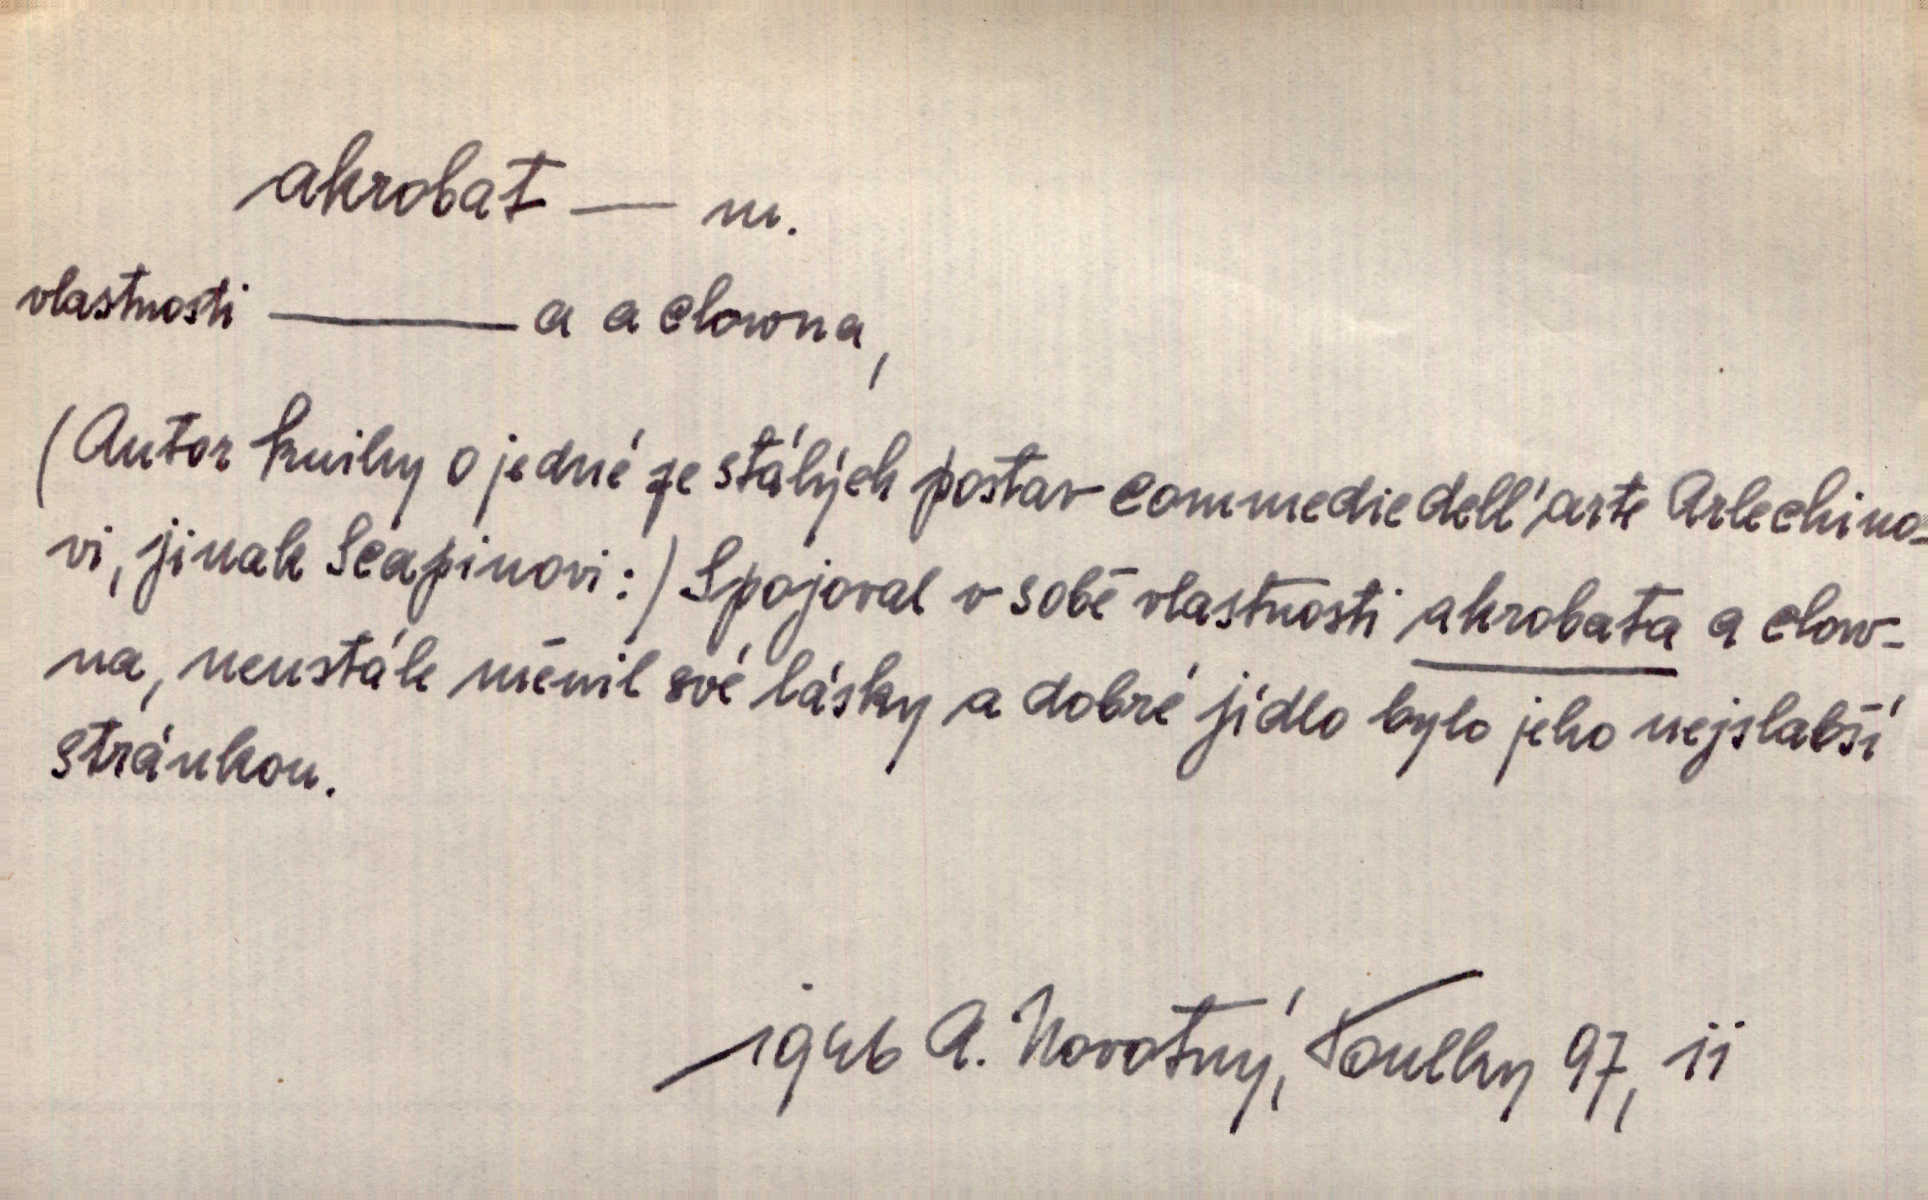 akrobat — m.
vlastnosti ——— a a clowna,
(Autor knihy o jedné ze stálých postav commedie dell'arte Arlechino-
vi, jinak Scapinovi:) Spojoval v sobě vlastnosti akrobata a clow-
na, neustále měnil své lásky a dobré jídlo bylo jeho nejslabší
stránkou.
1946 A. Novotný, Toulky 97, ii